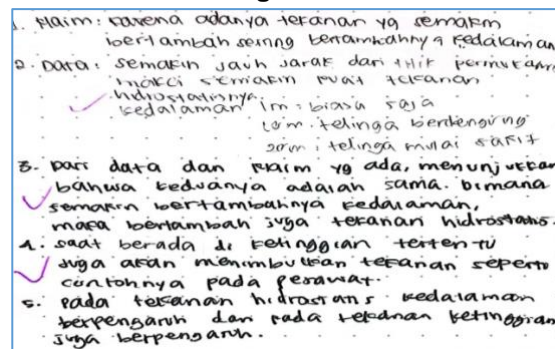 1. Klaim: Karena adanya tekanan yg semakin
bertambah seiring bertambahnya kedalaman
2. Data: semakin jauh jarak dari titik permukaan
maka semakin kuat tekanan
hidrostatisnya
kedalaman 1m: biasa saja
10m: telinga berdengung
20m: telinga mulai sakit
3. Dari data dan klaim yg ada, menunjukkan
bahwa keduanya adalah sama. Dimana
semakin bertambahnya kedalaman,
maka bertambah juga tekanan hidrostatis.
4. saat berada di ketinggian tertentu
juga akan menimbulkan tekanan seperti
contohnya pada pesawat.
5. pada tekanan hidrostatis kedalaman
berpengaruh dan pada tekanan ketinggian
juga berpengaruh.